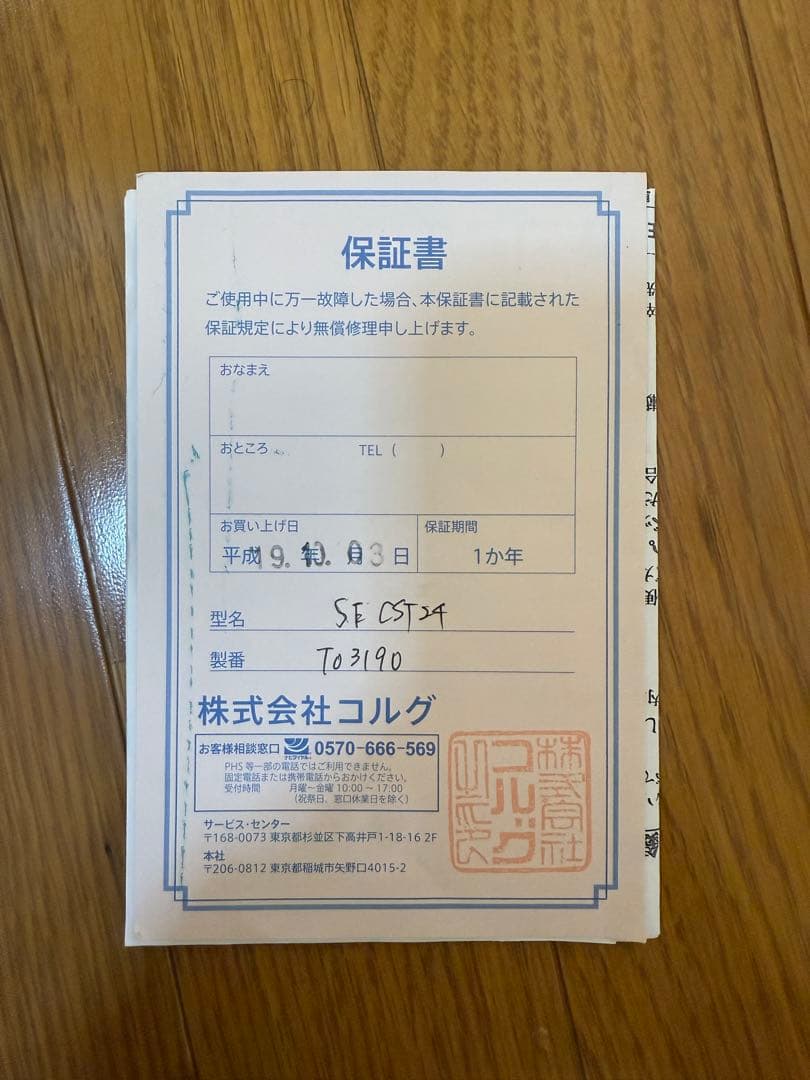 保証書
ご使用中に万一故障した場合、本保証書に記載された
保証規定により無償修理申し上げます。
おなまえ
おところ TEL ( )
お買い上げ日 保証期間
平成19.年10.月03日 1か年
型名 SE CST24
製番 T03190
株式会社コルグ
お客様相談窓口 ナビダイヤル 0570-666-569
PHS等一部の電話ではご利用できません。
固定電話または携帯電話からおかけください。
受付時間 月曜〜金曜 10:00 〜 17:00
(祝祭日、窓口休業日を除く)
サービス・センター
〒168-0073 東京都杉並区下高井戸1-18-16 2F
本社
〒206-0812 東京都稲城市矢野口4015-2
株式会社
コルグ
之印